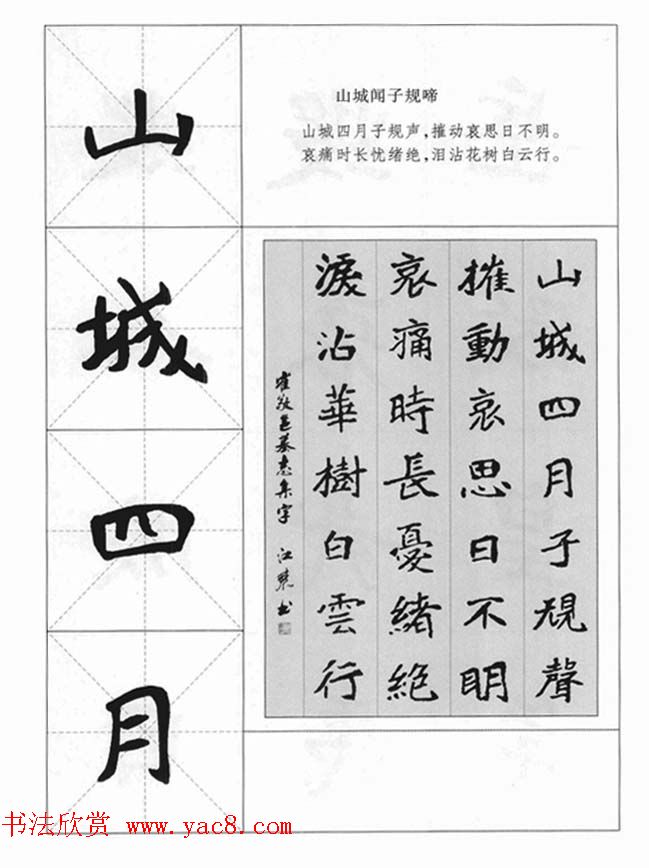 山
城
四
月
山城闻子规啼
山城四月子规声，摧动哀思日不明。
哀痛时长忧绪绝，泪沾花树白云行。
山城四月子规聲
摧動哀思日不明
哀痛時長憂緒絕
淚沾華樹白雲行
崔敬邕墓志集字 江曉书
书法欣赏 www.yac8.com